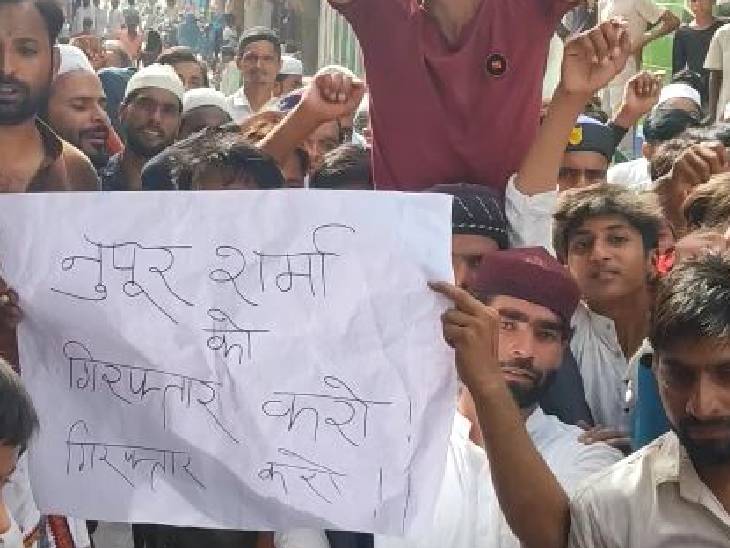 नुपूर शर्मा
को
गिरफ्तार करो!
गिरफ्तार करो!!